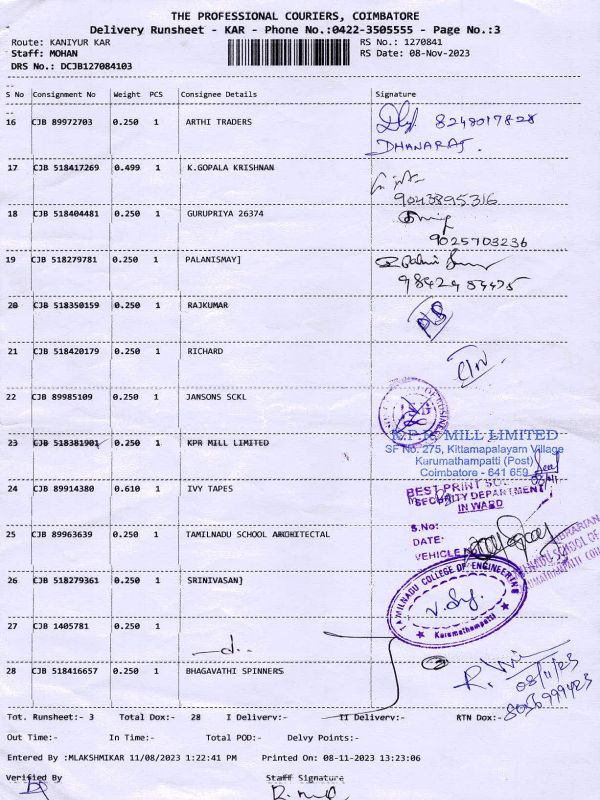 THE PROFESSIONAL COURIERS, COIMBATORE
Delivery Runsheet - KAR - Phone No.:0422-3505555 - Page No.:3
Route: KANIYUR KAR RS No.: 1270841
Staff: MOHAN RS Date: 08-Nov-2023
DRS No.: DCJB127084103
S No Consignment No Weight PCS Consignee Details Signature
16 CJB 89972703 0.250 1 ARTHI TRADERS 8248017828
DHANARAJ.
17 CJB 518417269 0.499 1 K.GOPALA KRISHNAN
9043895316
18 CJB 518404481 0.250 1 GURUPRIYA 26374
9025703236
19 CJB 518279781 0.250 1 PALANISMAY]
20 CJB 518350159 0.250 1 RAJKUMAR
21 CJB 518420179 0.250 1 RICHARD
22 CJB 89985109 0.250 1 JANSONS SCKL
23 CJB 518381901 0.250 1 KPR MILL LIMITED
K.P.R. MILL LIMITED
SF No. 275, Kittamapalayam Village
Karumathampatti (Post)
Coimbatore - 641 659
24 CJB 89914380 0.610 1 IVY TAPES
BEST PRINT
SECURITY DEPARTMENT
IN WARD
S.No:
DATE:
VEHICLE
25 CJB 89963639 0.250 1 TAMILNADU SCHOOL ARCHITECTAL
LIBRARIAN
SCHOOL OF
26 CJB 518279361 0.250 1 SRINIVASAN]
TAMILNADU COLLEGE OF ENGINEERING
Karumathampatti
27 CJB 1405781 0.250 1
28 CJB 518416657 0.250 1 BHAGAVATHI SPINNERS
08/11/23
8056999423
Tot. Runsheet:- 3 Total Dox:- 28 I Delivery:- II Delivery:- RTN Dox:-
Out Time:- In Time:- Total POD:- Delvy Points:-
Entered By :MLAKSHMIKAR 11/08/2023 1:22:41 PM Printed On: 08-11-2023 13:23:06
Verified By Staff Signature